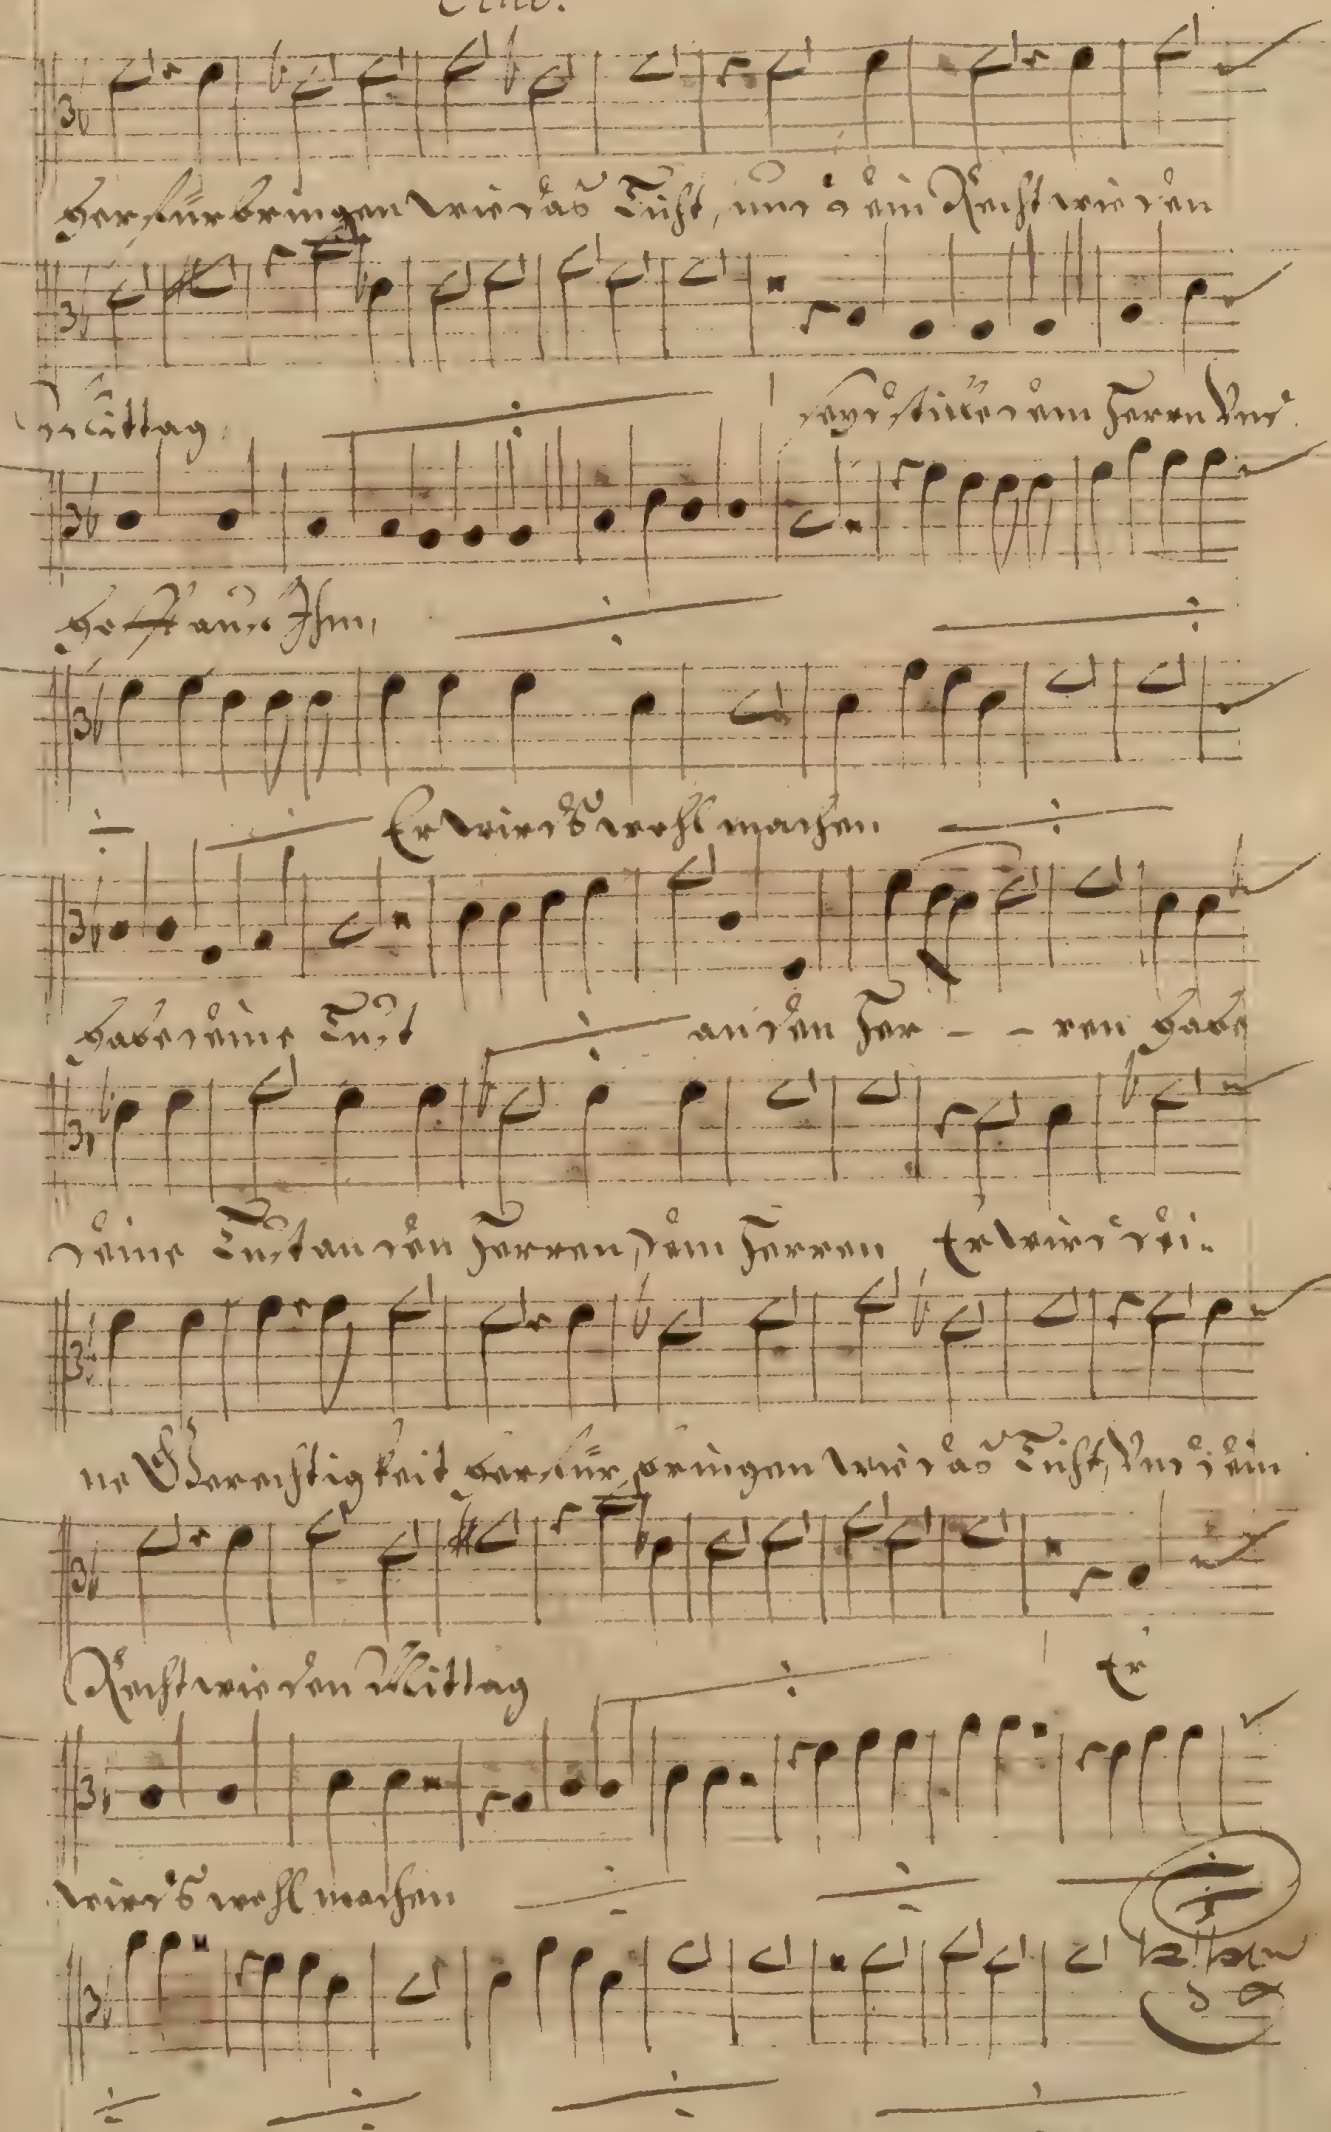 herfür bringen wie das Licht, und dein Recht wie den
Mittag, seyd stille dem Herrn Und
hofft auf Ihm,
Er wird's wohl machen
habe deine Lust an den Her - - ren habe
deine Lust an den Herren, dem Herren Er wird dei-
ne Gerechtigkeit herfür bringen wie das Licht, Und dein
Recht wie den Mittag Er
wird's wohl machen